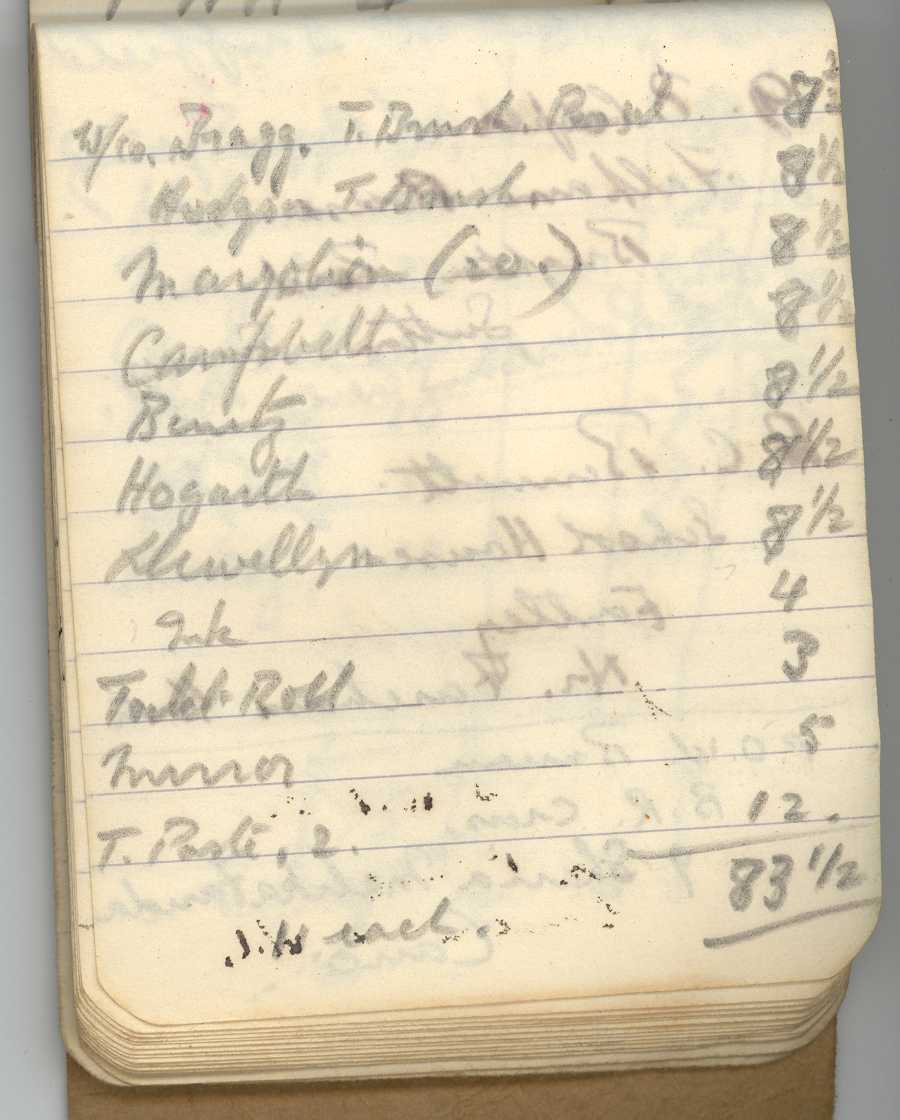 W/co. Bragg. T. Brush. 8 1/2
Hodgson. T. Brush. 8 1/2
(10.) 8 1/2
Campbell 8 1/2
8 1/2
Hogarth 8 1/2
Llewellyn 8 1/2
Ink 4
Toilet Roll 3
Mirror 5
T. Paste, 2. 12.
83 1/2
each.